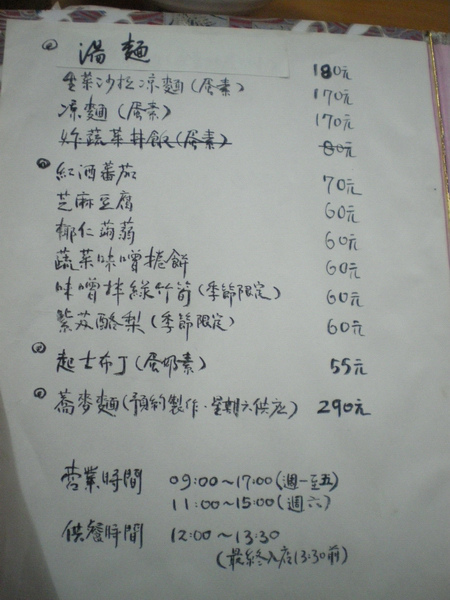 湯麵 180元
生菜沙拉涼麵(蛋素) 170元
涼麵(蛋素) 170元
炸蔬菜丼飯(蛋素) 80元
紅酒蕃茄 70元
芝麻豆腐 60元
椰仁蒟蒻 60元
蔬菜味噌捲餅 60元
味噌拌綠竹筍(季節限定) 60元
紫蘇酪梨(季節限定) 60元
起士布丁(蛋奶素) 55元
蕎麥麵(預約製作·星期六供应) 290元
营業時間 09:00~17:00(週一至五)
11:00~15:00(週六)
供餐時間 12:00~13:30
(最終入店13:30前)